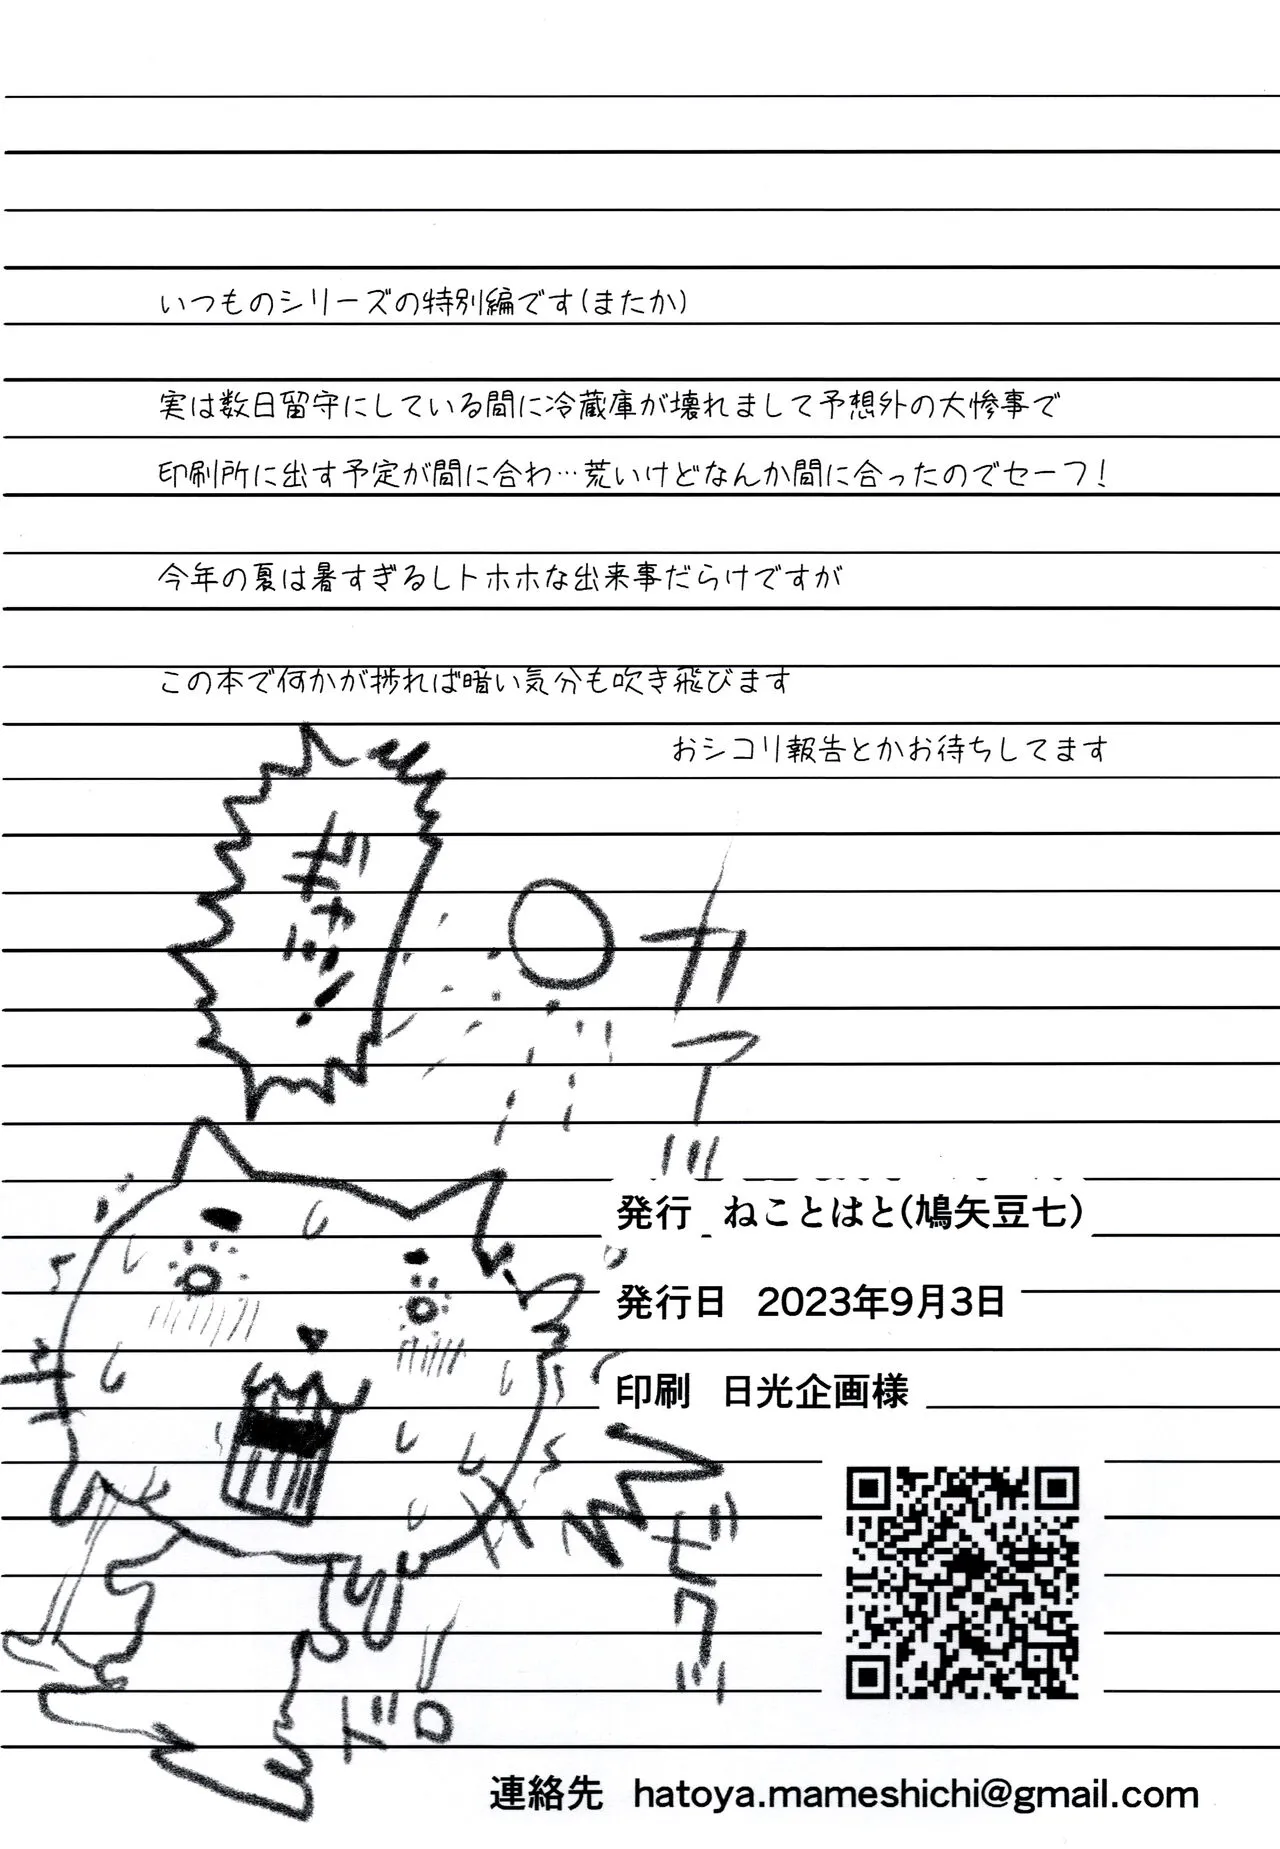 いつものシリーズの特別編です(またか)
実は数日留守にしている間に冷蔵庫が壊れまして予想外の大惨事で
印刷所に出す予定が間に合わ…荒いけどなんか間に合ったのでセーフ!
今年の夏は暑すぎるしトホホな出来事だらけですが
この本で何かが捗れば暗い気分も吹き飛びます
おシコリ報告とかお待ちしてます
ギャッ!
カア
発行 ねことはと(鳩矢豆七)
発行日 2023年9月3日
印刷 日光企画様
ドロ
連絡先 hatoya.mameshichi@gmail.com